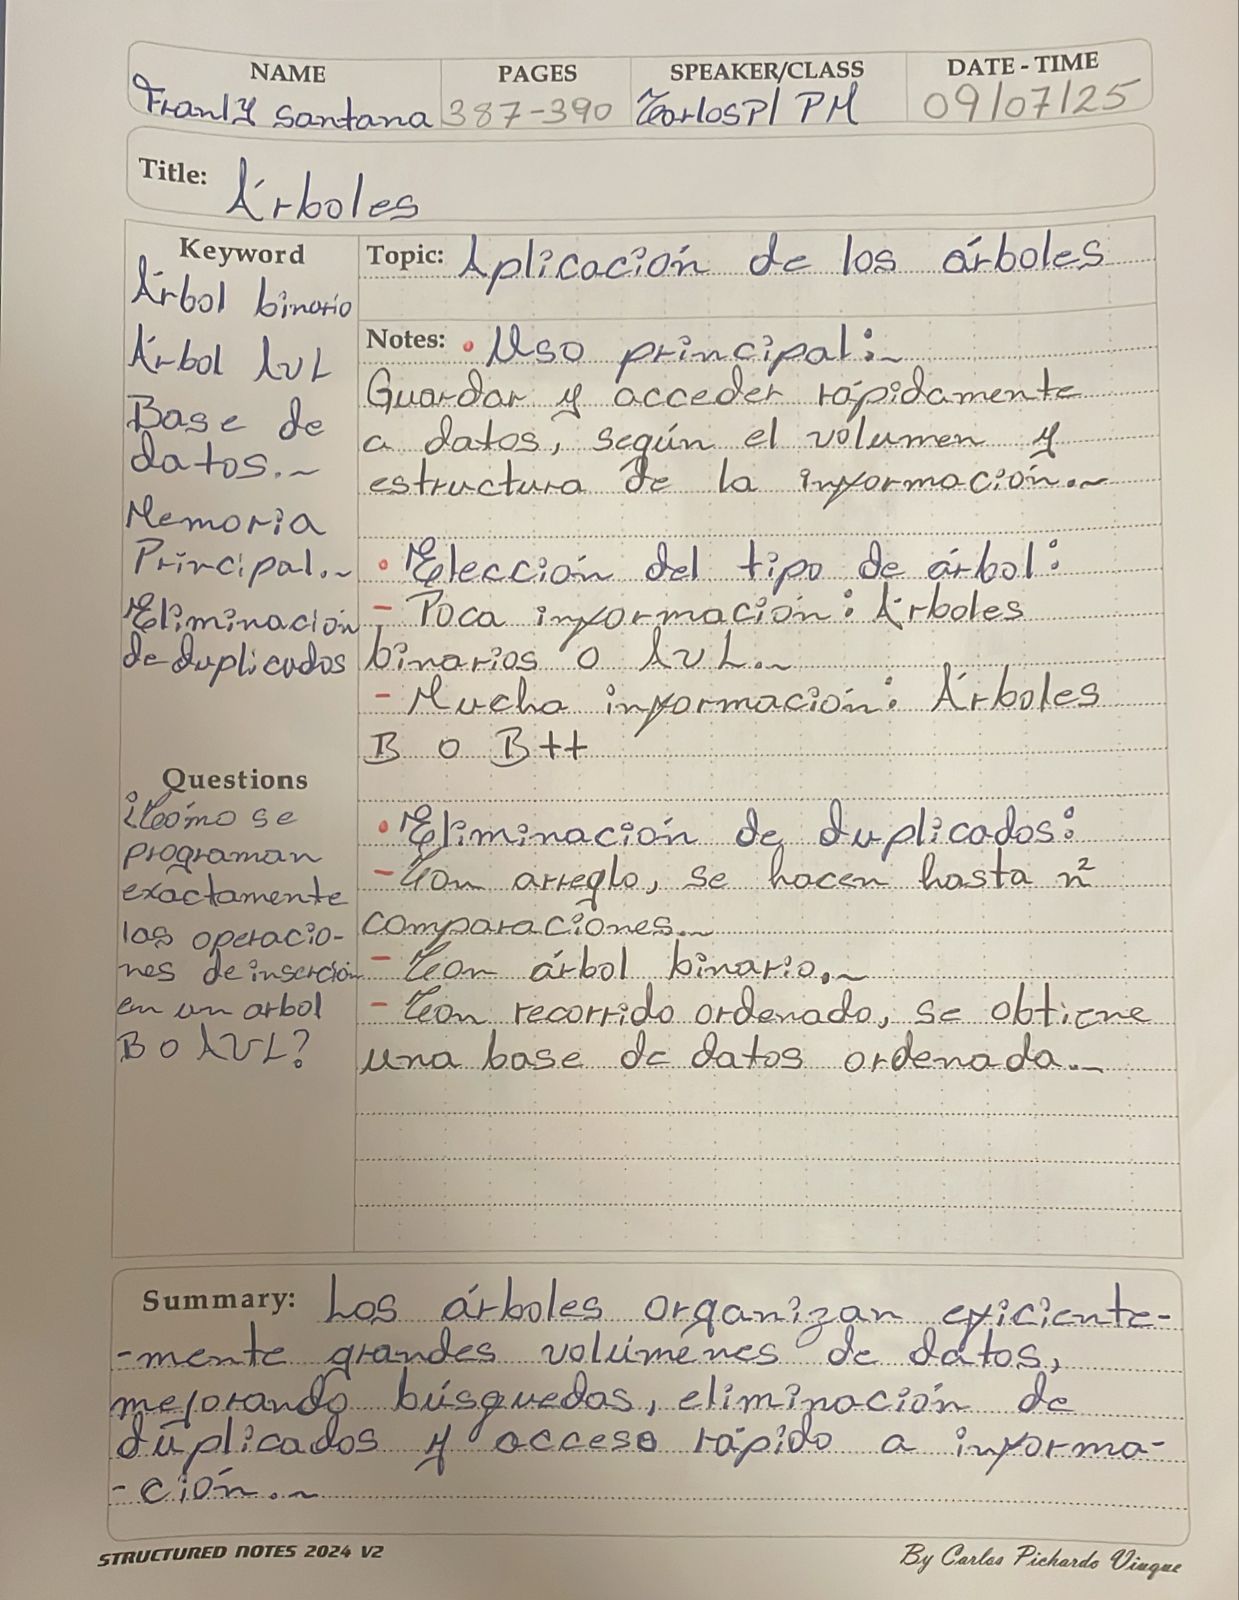 NAME PAGES SPEAKER/CLASS DATE - TIME
Franly Santana 387-390 CarlosP/ PM 09/07/25
Title: Árboles
Keyword
Árbol binario
Árbol AVL
Base de
datos.~
Memoria
Principal.~
Eliminación
de duplicados
Questions
¿Cómo se
programan
exactamente
las operacio-
nes de inserción
en un arbol
B O AVL?
Topic: Aplicación de los árboles
Notes: • Uso principal:~
Guardar y acceder rápidamente
a datos, según el volumen y
estructura de la información.~
• Elección del tipo de árbol:
- Poca información: Árboles
binarios o AVL.~
- Mucha información: Árboles
B o B++
• Eliminación de duplicados:
- Con arreglo, se hacen hasta n²
comparaciones.~
- Con árbol binario.~
- Con recorrido ordenado, se obtiene
una base de datos ordenada.~
Summary: Los árboles organizan eficiente-
-mente grandes volúmenes de datos,
mejorando búsquedas, eliminación de
duplicados y acceso rápido a informa-
-ción.~
STRUCTURED NOTES 2024 V2
By Carlos Pichardo Viuque